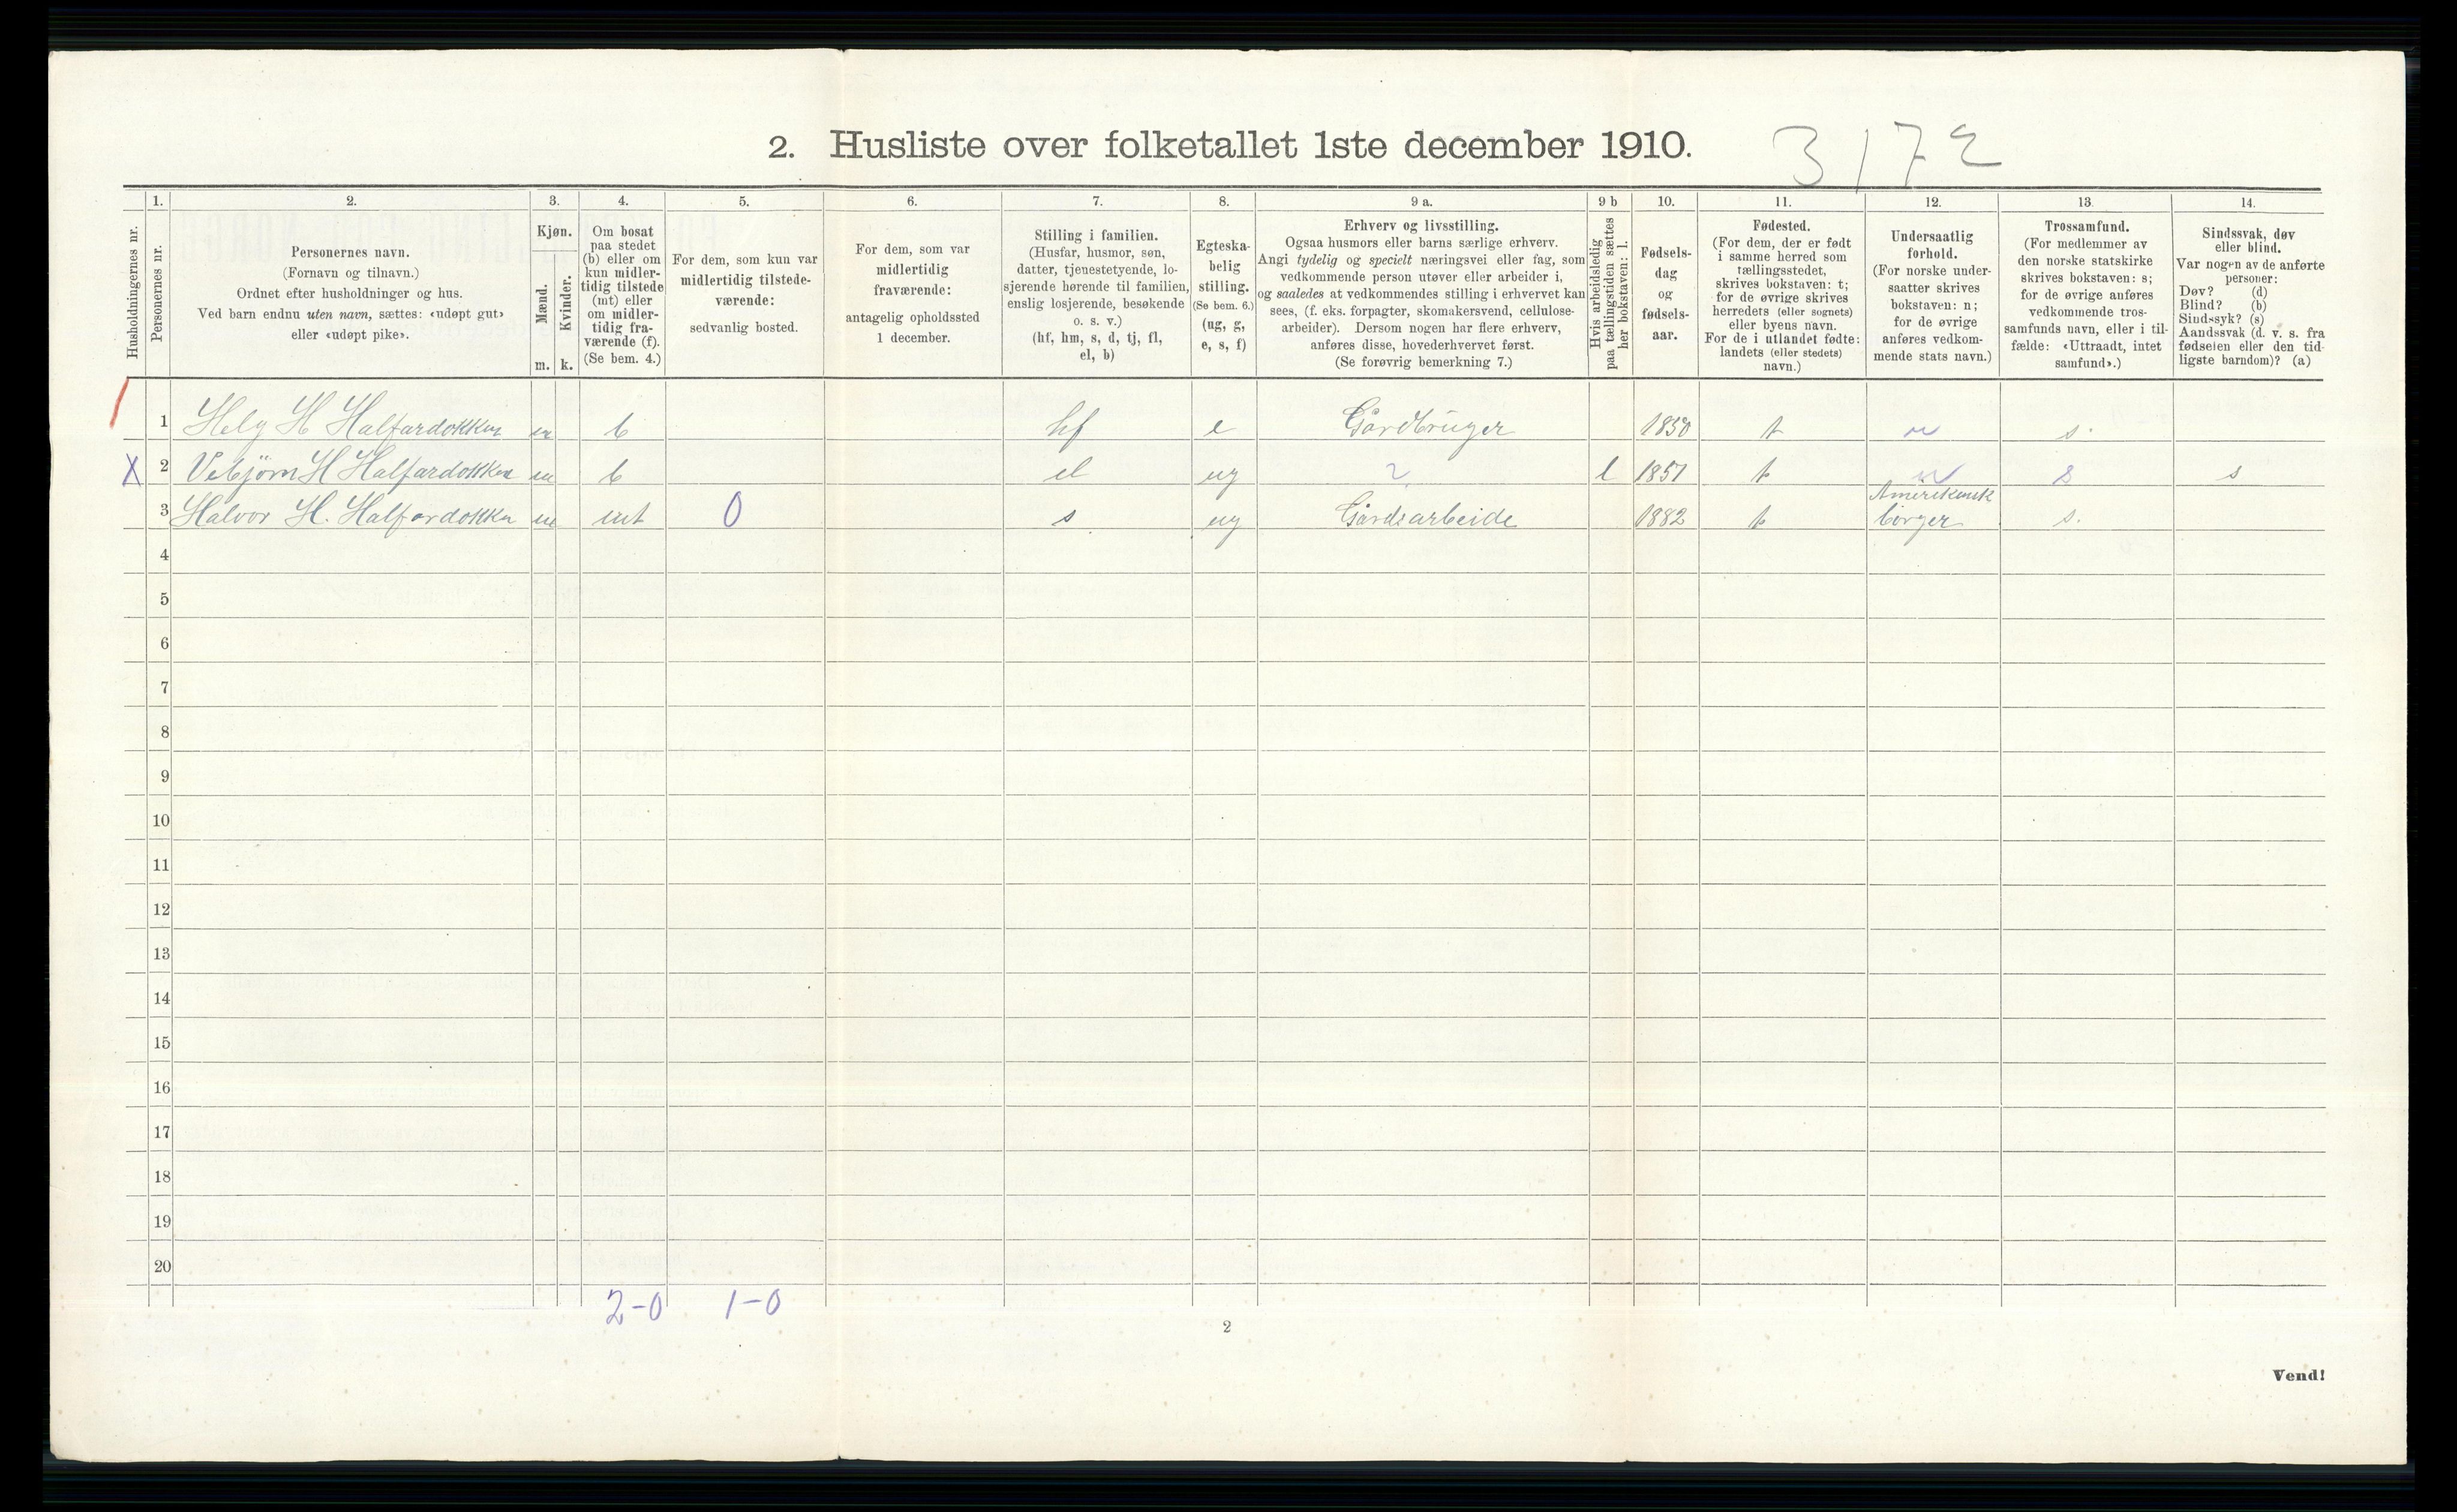 2. Husliste over folketallet 1ste december 1910. 3172
Husholdningernes nr.
1.
Personernes nr.
2.
Personernes navn.
(Fornavn og tilnavn.)
Ordnet efter husholdninger og hus.
Ved barn endnu uten navn, sættes: «udøpt gut»
eller «udøpt pike».
3.
Kjøn.
Mænd.
Kvinder.
m. k.
4.
Om bosat
paa stedet
(b) eller om
kun midler-
tidig tilstede
(mt) eller
om midler-
tidig fra-
værende (f).
(Se bem. 4.)
5.
For dem, som kun var
midlertidig tilstede-
værende:
sedvanlig bosted.
6.
For dem, som var
midlertidig
fraværende:
antagelig opholdssted
1 december.
7.
Stilling i familien.
(Husfar, husmor, søn,
datter, tjenestetyende, lo-
sjerende hørende til familien,
enslig losjerende, besøkende
o. s. v.)
(hf, hm, s, d, tj, fl,
el, b)
8.
Egteska-
belig
stilling.
(Se bem. 6.)
(ug, g,
e, s, f)
9 a.
Erhverv og livsstilling.
Ogsaa husmors eller barns særlige erhverv.
Angi tydelig og specielt næringsvei eller fag, som
vedkommende person utøver eller arbeider i,
og saaledes at vedkommendes stilling i erhvervet kan
sees, (f. eks. forpagter, skomakersvend, cellulose-
arbeider). Dersom nogen har flere erhverv,
anføres disse, hovederhvervet først.
(Se forøvrig bemerkning 7.)
9 b
Hvis arbeidsledig
paa tællingstiden sættes
her bokstaven: l.
10.
Fødsels-
dag
og
fødsels-
aar.
11.
Fødested.
(For dem, der er født
i samme herred som
tællingsstedet,
skrives bokstaven: t;
for de øvrige skrives
herredets (eller sognets)
eller byens navn.
For de i utlandet fødte:
landets (eller stedets)
navn.)
12.
Undersaatlig
forhold.
(For norske under-
saatter skrives
bokstaven: n;
for de øvrige
anføres vedkom-
mende stats navn.)
13.
Trossamfund.
(For medlemmer av
den norske statskirke
skrives bokstaven: s;
for de øvrige anføres
vedkommende tros-
samfunds navn, eller i til-
fælde: «Uttraadt, intet
samfund».)
14.
Sindssvak, døv
eller blind.
Var nogen av de anførte
personer:
Døv? (d)
Blind? (b)
Sindssyk? (s)
Aandssvak (d. v. s. fra
fødselen eller den tid-
ligste barndom)? (a)
1 Helg H Halfardokken m b hf e Gårdbruger 1850 t n s.
X 2 Vebjørn H Halfardokken m b el ug l 1851 t n s s
3 Halvor H. Halfardokken m mt 0 s ug Gårdsarbeide 1882 t Amerikansk borger s.
4
5
6
7
8
9
10
11
12
13
14
15
16
17
18
19
20
2-0 1-0
2
Vend!